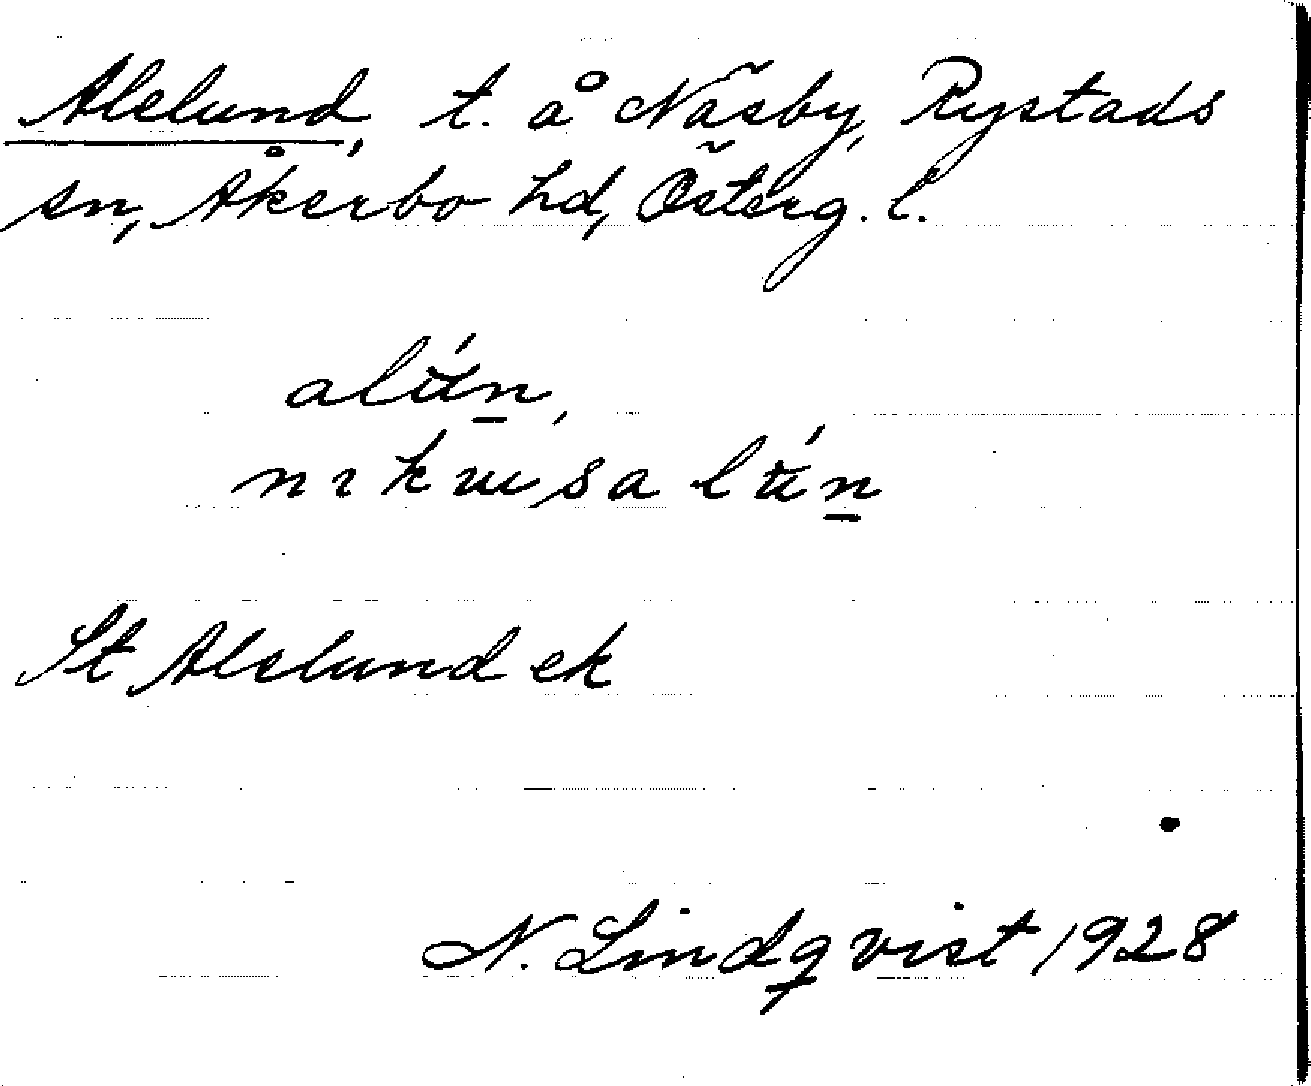 Alelund, t. å Näsby, Rystads
sn, Åkerbo hd, Österg. l.
alún,
St Alelund ek
N. Lindqvist 1928